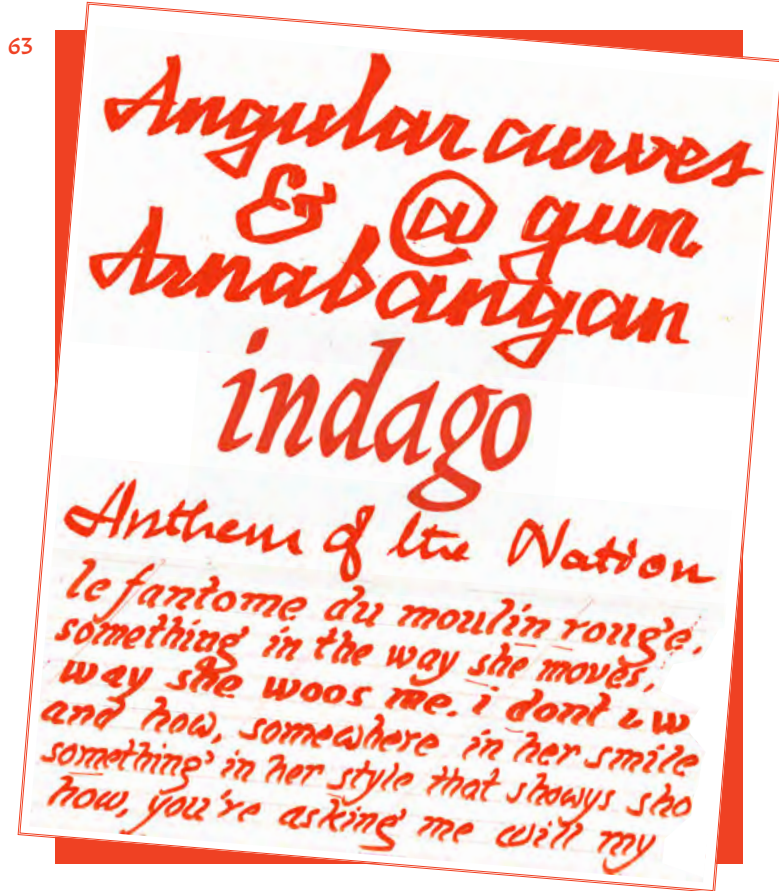 63
Angular curves
& @ gun
Arnab angan
indago
Anthem of the Nation
le fantome du moulin rouge,
something in the way she moves,
way she woos me. i dont
and how, somewhere in her smile
something in her style that showys sho
how, you're asking me will my